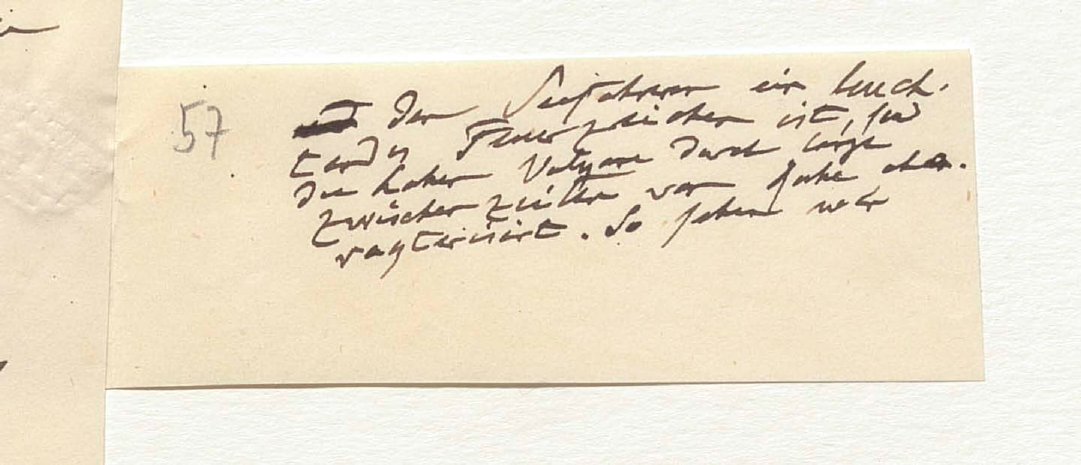 57
den Seefahrern ein leuch-
tendes Feuerzeichen ist, sind
die hohen Vulkane durch lange
zwischenzeiten von Ruhe cha-
racterisirt. So sehen wir